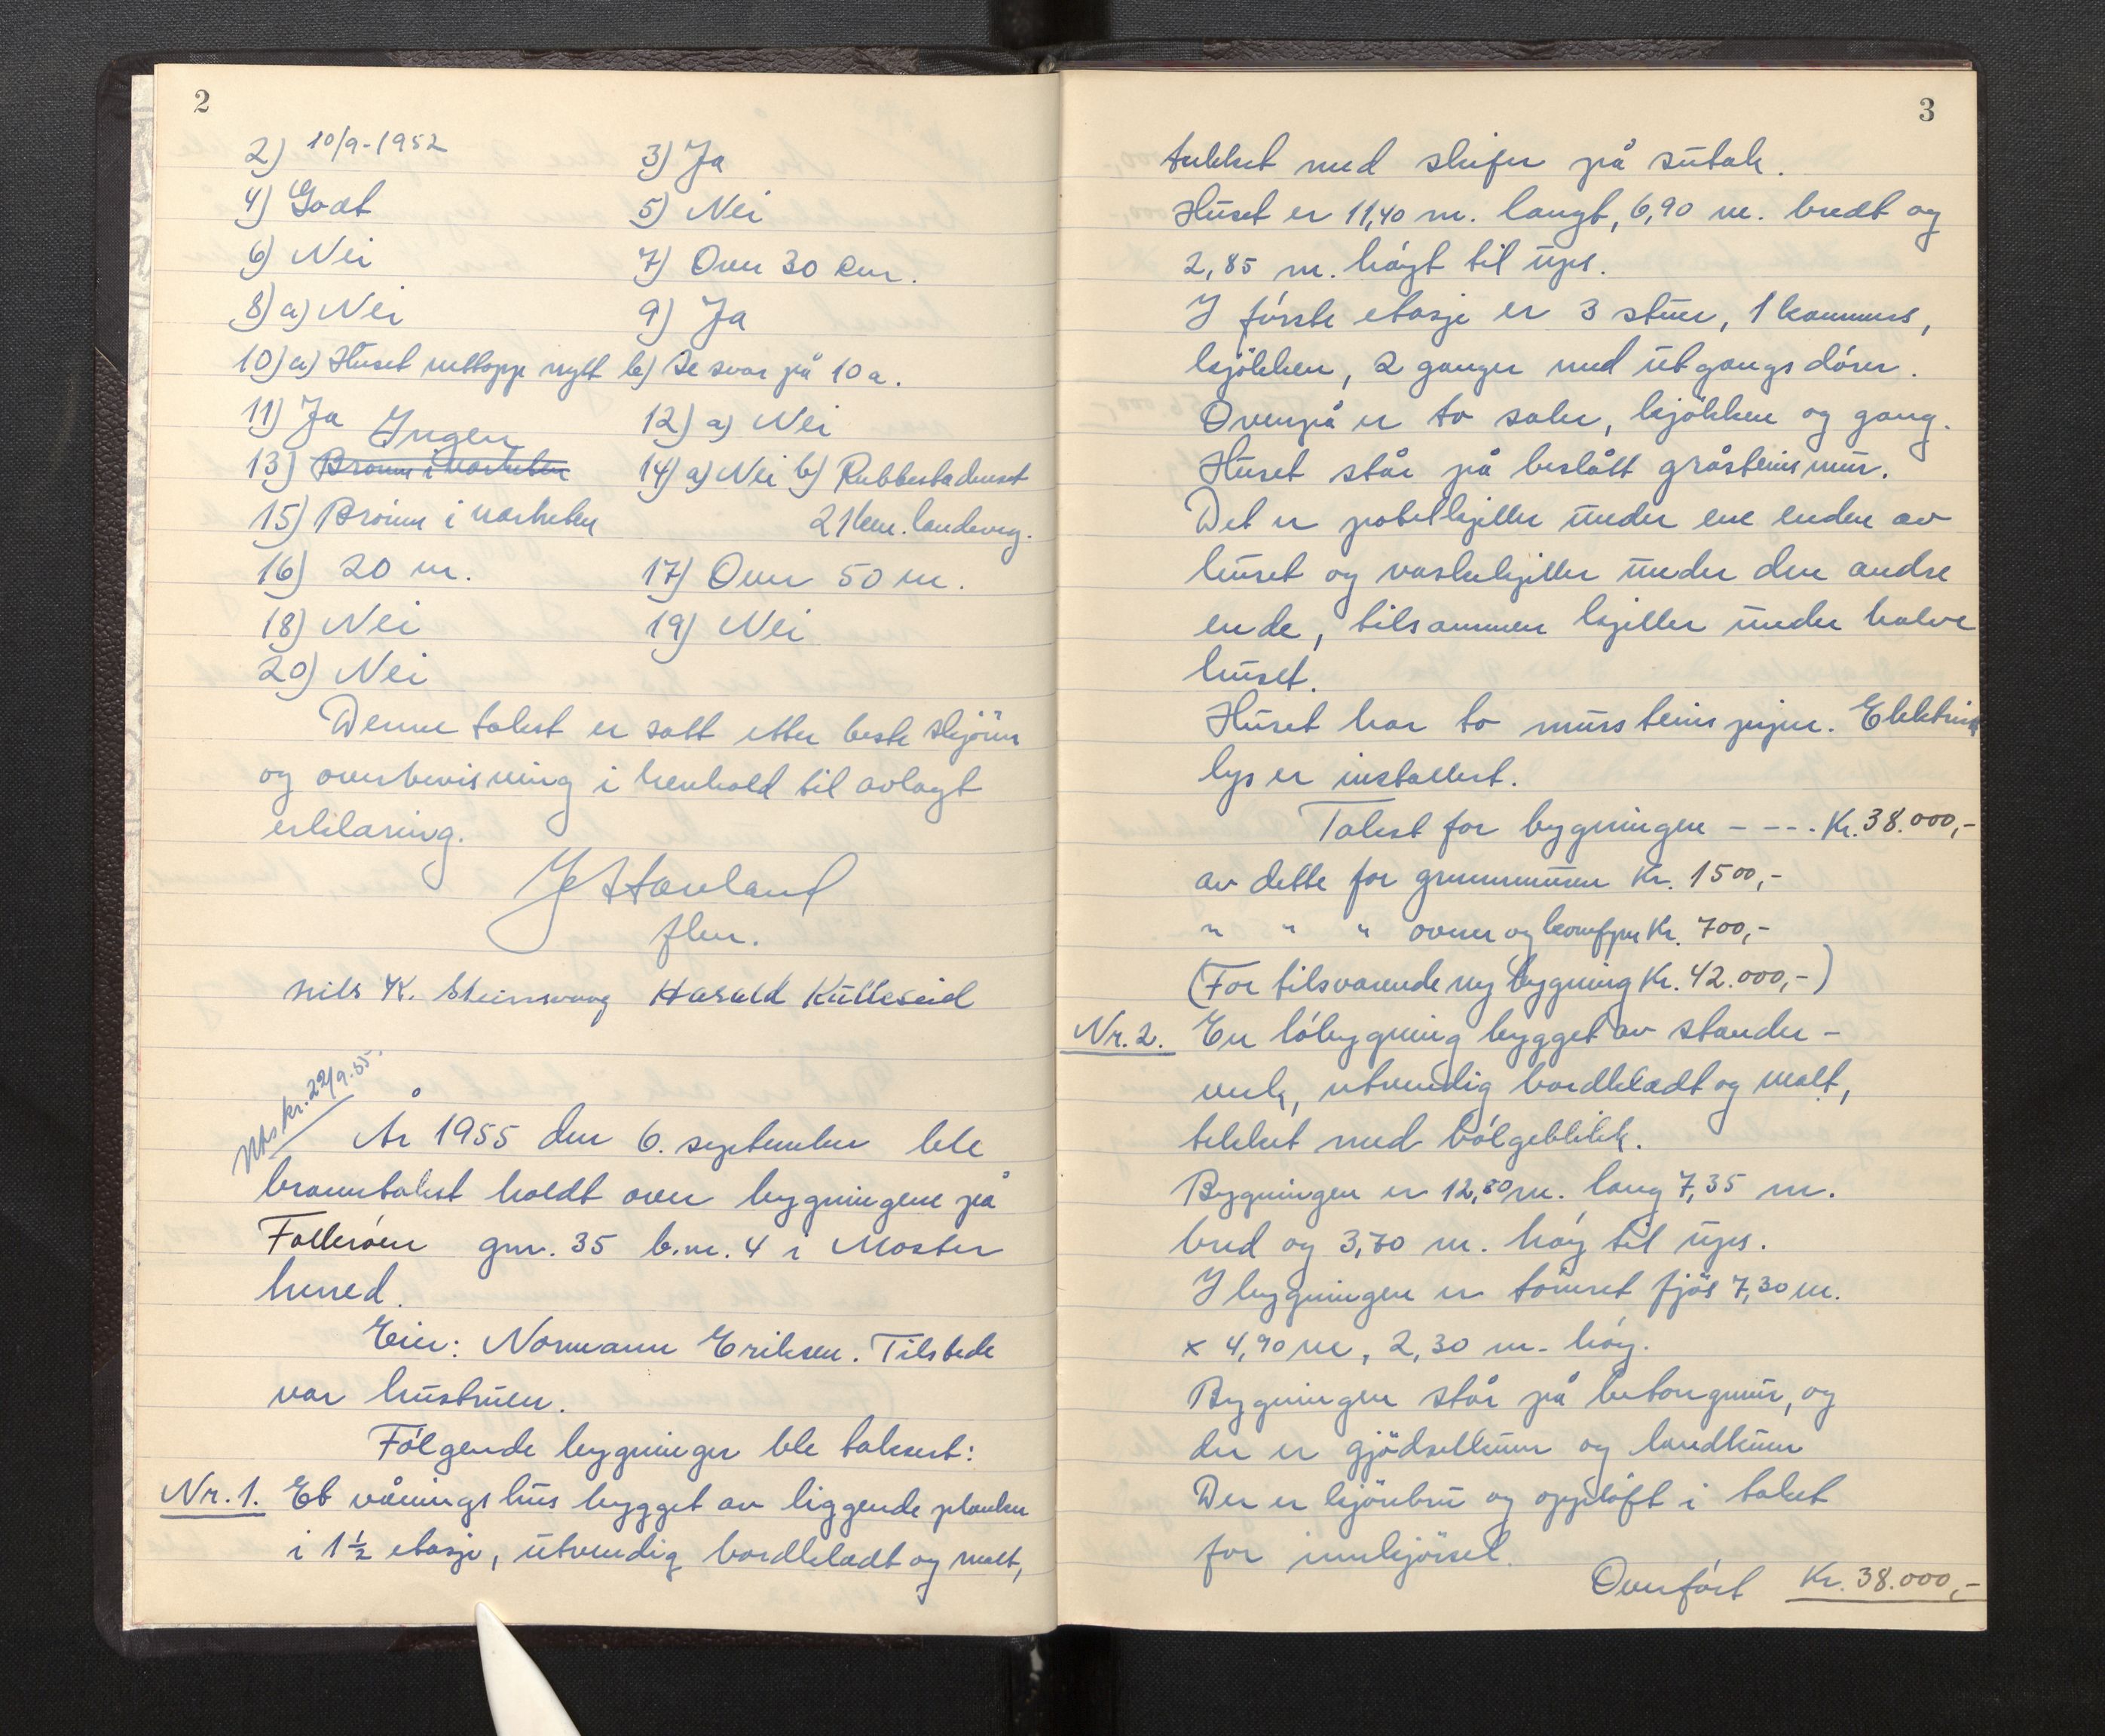 2
2) 10/9-1952 3) Ja
4) Godt 5) Nei
6) Nei 7) Over 30 km.
8) a) Nei 9) Ja
10) a) Huset nettopp nytt b) Se svar på 10 a.
11) Ja 12) a) Nei
Ingen
13) Brønn i nærheten 14) a) Nei b) Rubbestadneset
15) Brønn i nærheten 21 km. landeveg.
16) 20 m. 17) Over 50 m.
18) Nei 19) Nei
20) Nei
Denne takst er satt etter beste skjönn
og overbevisning i henhold til avlagt
erklæring.
Hovland
flm.
Nils K. Steinsvaag Harald Kulleseid
Utskr. 22/9-55.
År 1955 den 6. september ble
branntakst holdt over bygningene på
Follerøen gnr. 35 b.nr. 4 i Moster
herred.
Eier: Normann Eriksen. Tilstede
var hustruen.
Følgende bygninger ble taksert:
Nr. 1. Et våningshus bygget av liggende planker
i 1½ etasje, utvendig bordkledt og malt,
3
tekket med skifer på sutak.
Huset er 11,40 m. langt, 6,90 m. bredt og
2,85 m. høgt til ups.
I første etasje er 3 stuer, 1 kammers,
kjökken, 2 ganger med utgangsdører.
Ovenpå er to saler, kjøkken og gang.
Huset står på beslått gråsteinsmur.
Det er potetkjeller under ene enden av
huset og vaskekjeller under den andre
ende, tilsammen kjeller under halve
huset.
Huset har to mursteinspiper. Elektrisk
lys er installert.
Takst for bygningen - - - . Kr. 38.000,-
av dette for grunnmuren Kr. 1500,-
" " " ovner og komfyr Kr. 700,-
(For tilsvarende ny bygning Kr. 42.000,-)
Nr. 2. En løbygning bygget av stander-
verk, utvendig bordkledt og malt,
tekket med bølgeblikk.
Bygningen er 12,80 m. lang 7,35 m.
bred og 3,70 m. høg til ups.
I bygningen er tømret fjös 7,30 m.
x 4,90 m, 2,30 m. høg.
Bygningen står på betongmur, og
der er gjödselkum og landkum
Der er kjörebru og oppløft i taket
for innkjørsel.
Overført Kr. 38.000,-